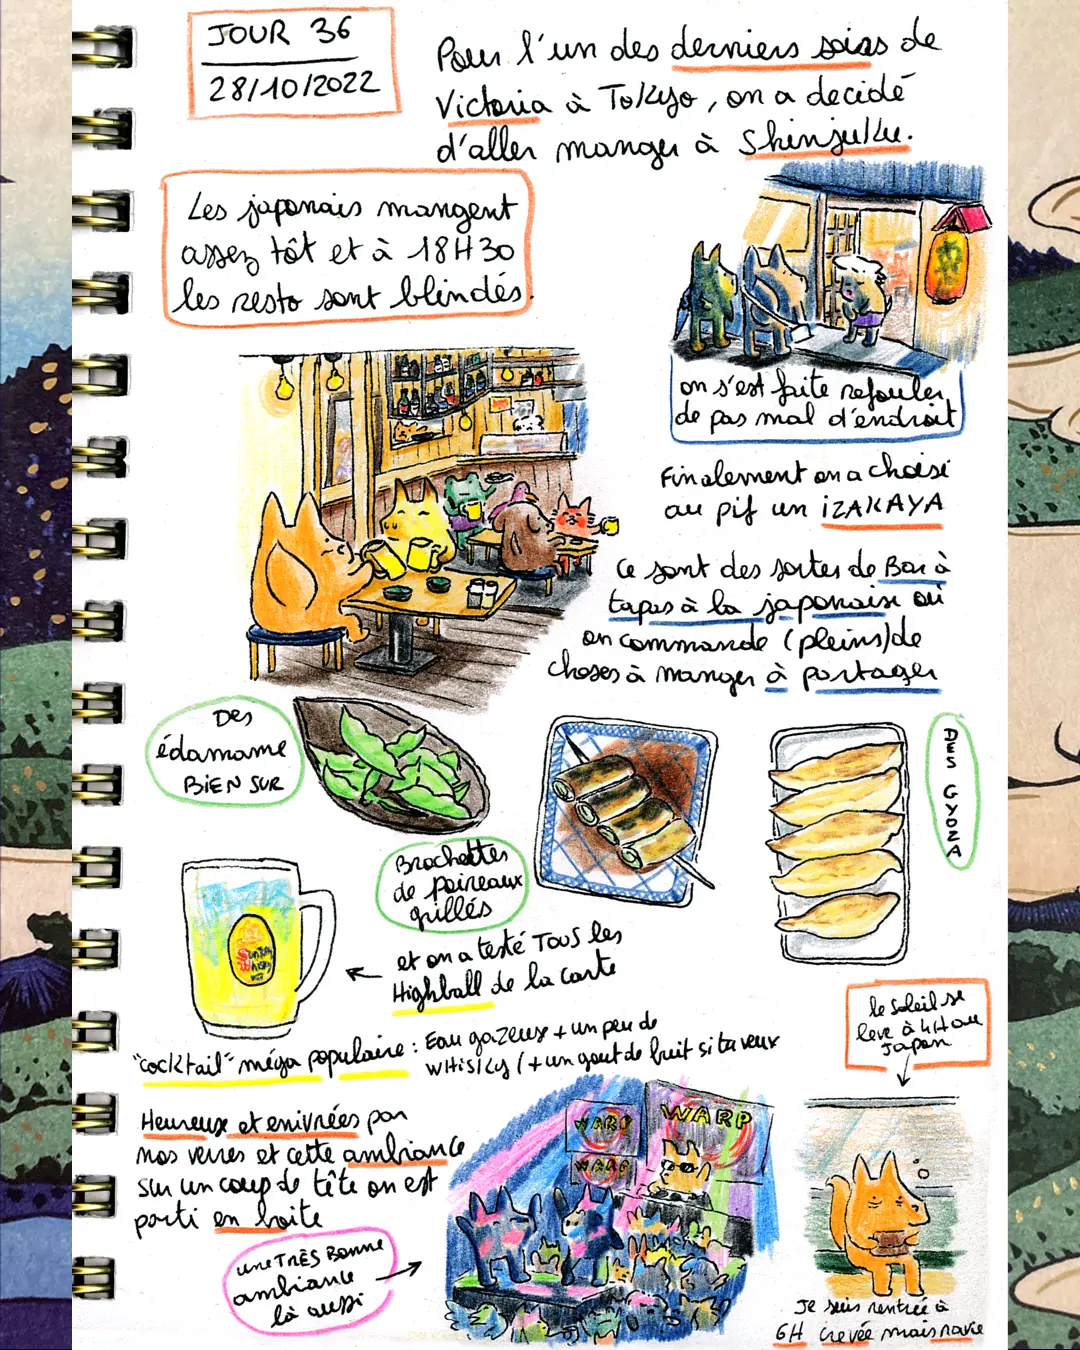 JOUR 36
28/10/2022
Pour l'un des derniers soirs de
Victoria à Tokyo, on a decidé
d'aller manger à Shinjuku.
Les japonais mangent
assez tôt et à 18H30
les resto sont blindés.
on s'est faite refouler
de pas mal d'endroit
Finalement on a choisi
au pif un iZAKAYA
Ce sont des sortes de Bar à
tapas à la japonaise où
on commande (pleins) de
choses à manger à partager
Des
édamame
BiEN SUR
Brochettes
de poireaux
grillés
DES GYOZA
et on a testé TOUS les
Highball de la carte
Suntory
Whisky
"cocktail" méga populaire : Eau gazeuse + un peu de
whisky (+ un gout de fruit si tu veux
le soleil se
leve à 4H au
Japon
Heureux et enivrées par
nos verres et cette ambiance
sur un coup de tête on est
parti en boite
une TRÈS Bonne
ambiance
là aussi
WARP
WARP
WARP
Je suis rentrée à
6H crevée mais ravie